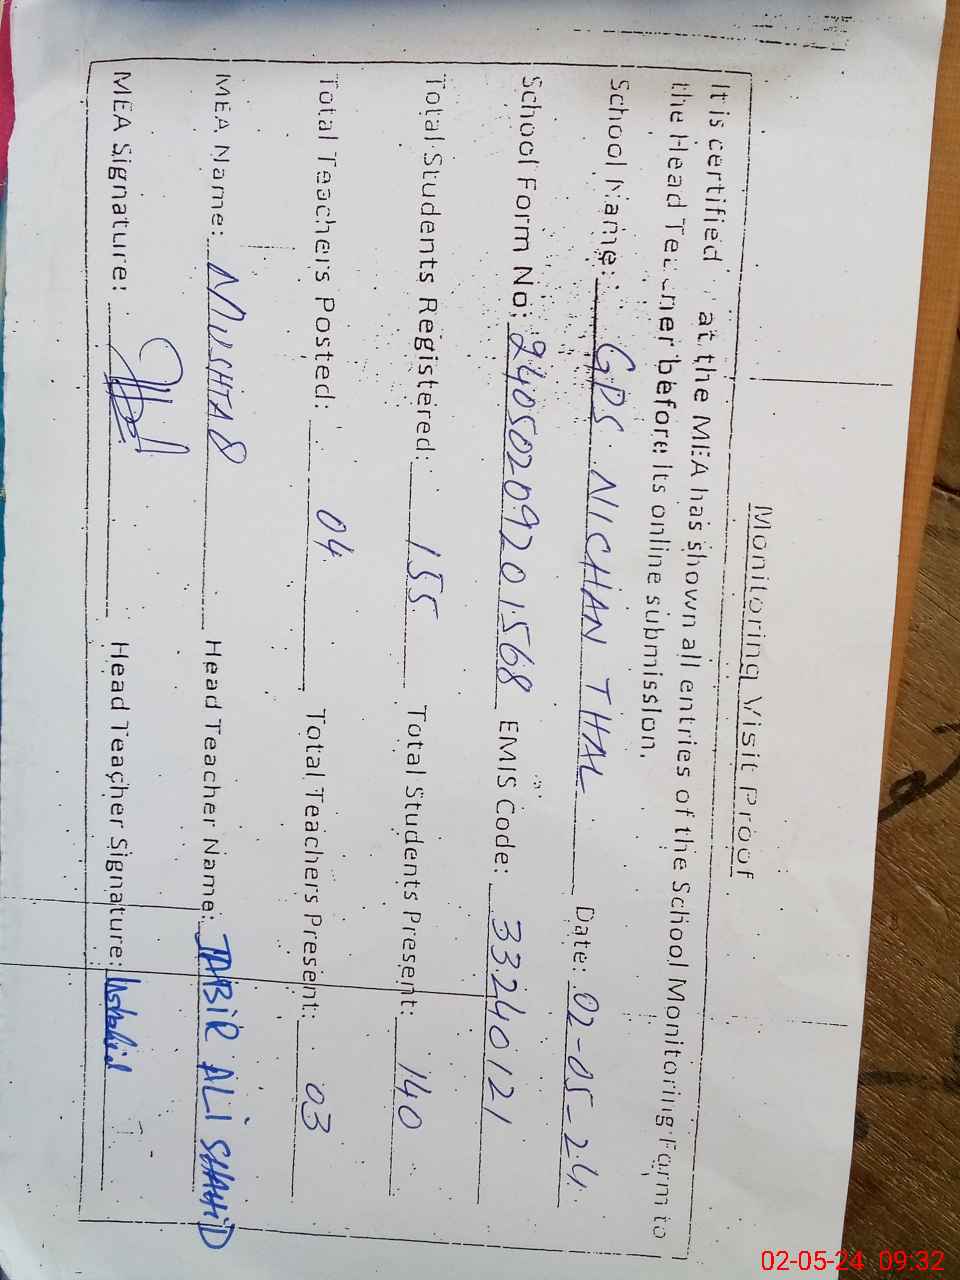 Monitoring Visit Proof
It is certified at the MEA has shown all entries of the School Monitoring Form to
the Head Teacher before its online submission.
School Name: GPS NICHAN THAL Date: 02-05-24
School Form No: 24050209201568 EMIS Code: 33240121
Total Students Registered: 155 Total Students Present: 140
Total Teachers Posted: 04 Total Teachers Present: 03
MEA Name: MUSHTAQ Head Teacher Name: JABIR ALI SHAHID
MEA Signature: Head Teacher Signature:
02-05-24 09:32